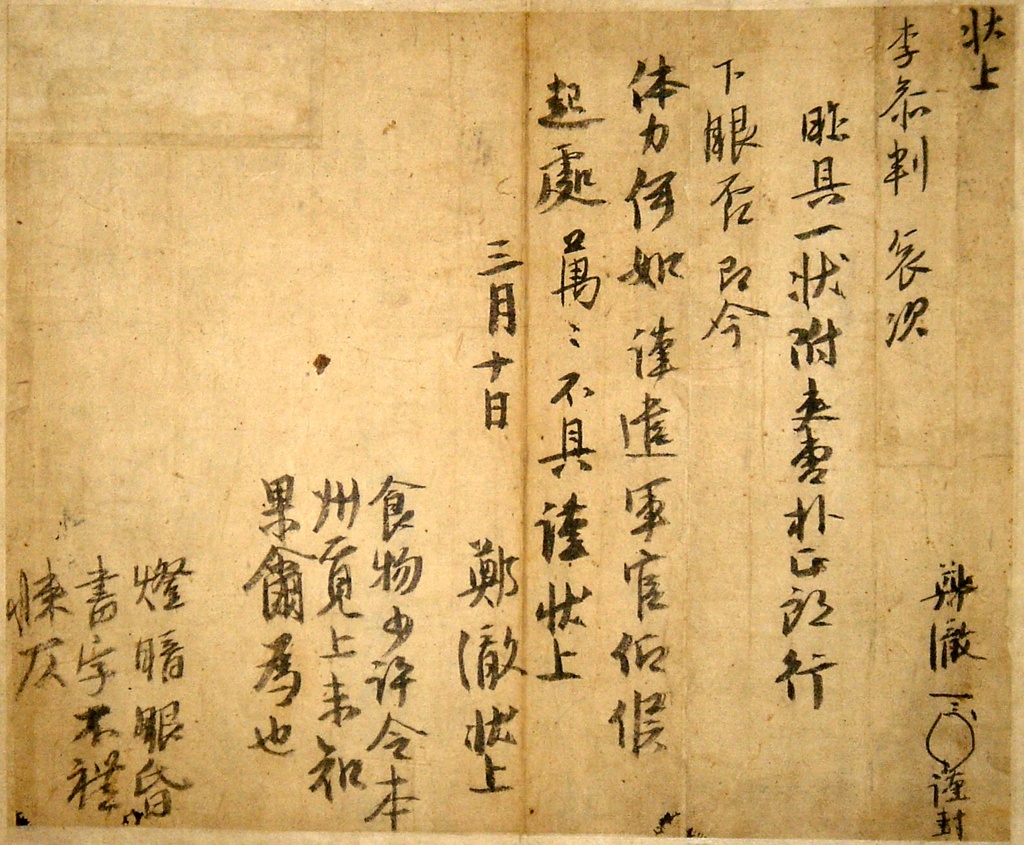 狀上
李叅判 哀次
鄭澈 謹封
昨具一狀附
朴正郎行
下眼否即今
体力何如 謹遣軍官伺候
起處 萬〻不具謹狀上
三月十日
鄭澈狀上
食物少許令本
州覓上未知
果爾爲也
燈暗眼昏
書字不禮
悚仄